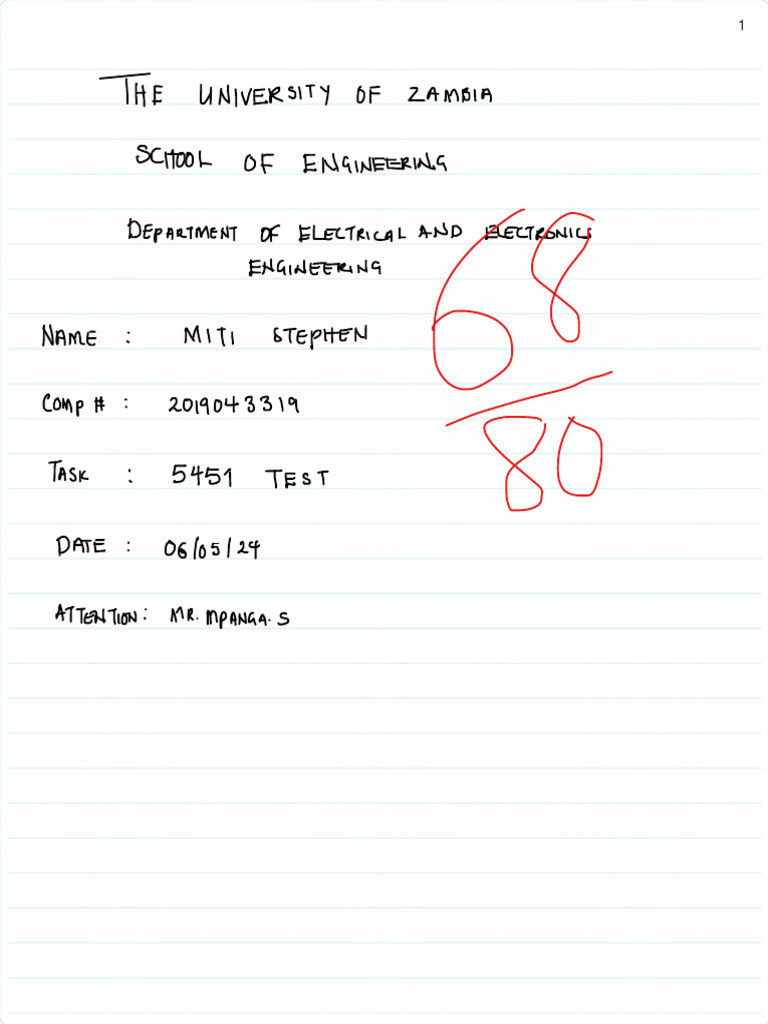 1
THE UNIVERSITY OF ZAMBIA
SCHOOL OF ENGINEERING
DEPARTMENT OF ELECTRICAL AND ELECTRONICS
ENGINEERING
NAME : MITI STEPHEN
COMP # : 2019043319
TASK : 5451 TEST
DATE : 06/05/24
ATTENTION: MR. MPANGA. S
68
80